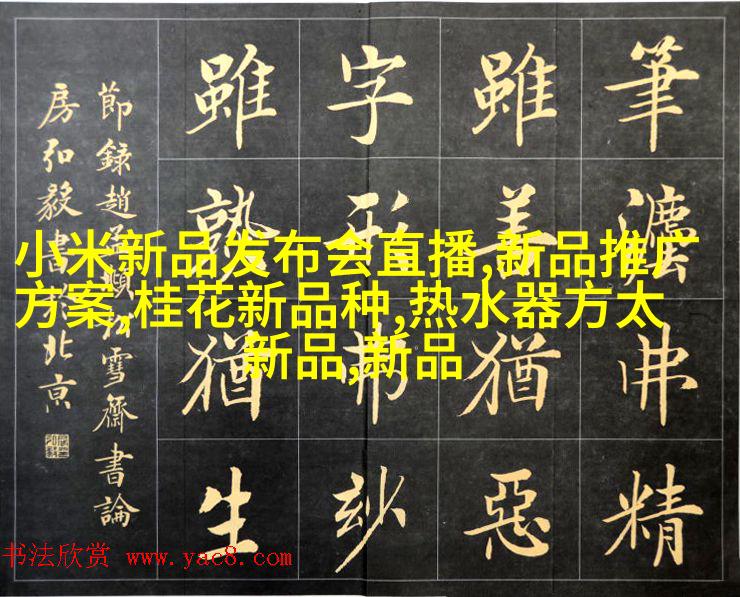 筆灋弗精
雖善猶惡
字形弗妙
雖熟猶生
節錄趙孟頫松雪齋書論
房弘毅書於北京
小米新品发布会直播,新品推广
方案,桂花新品种,热水器方太
新品,新品
书法欣赏 www.yac8.com